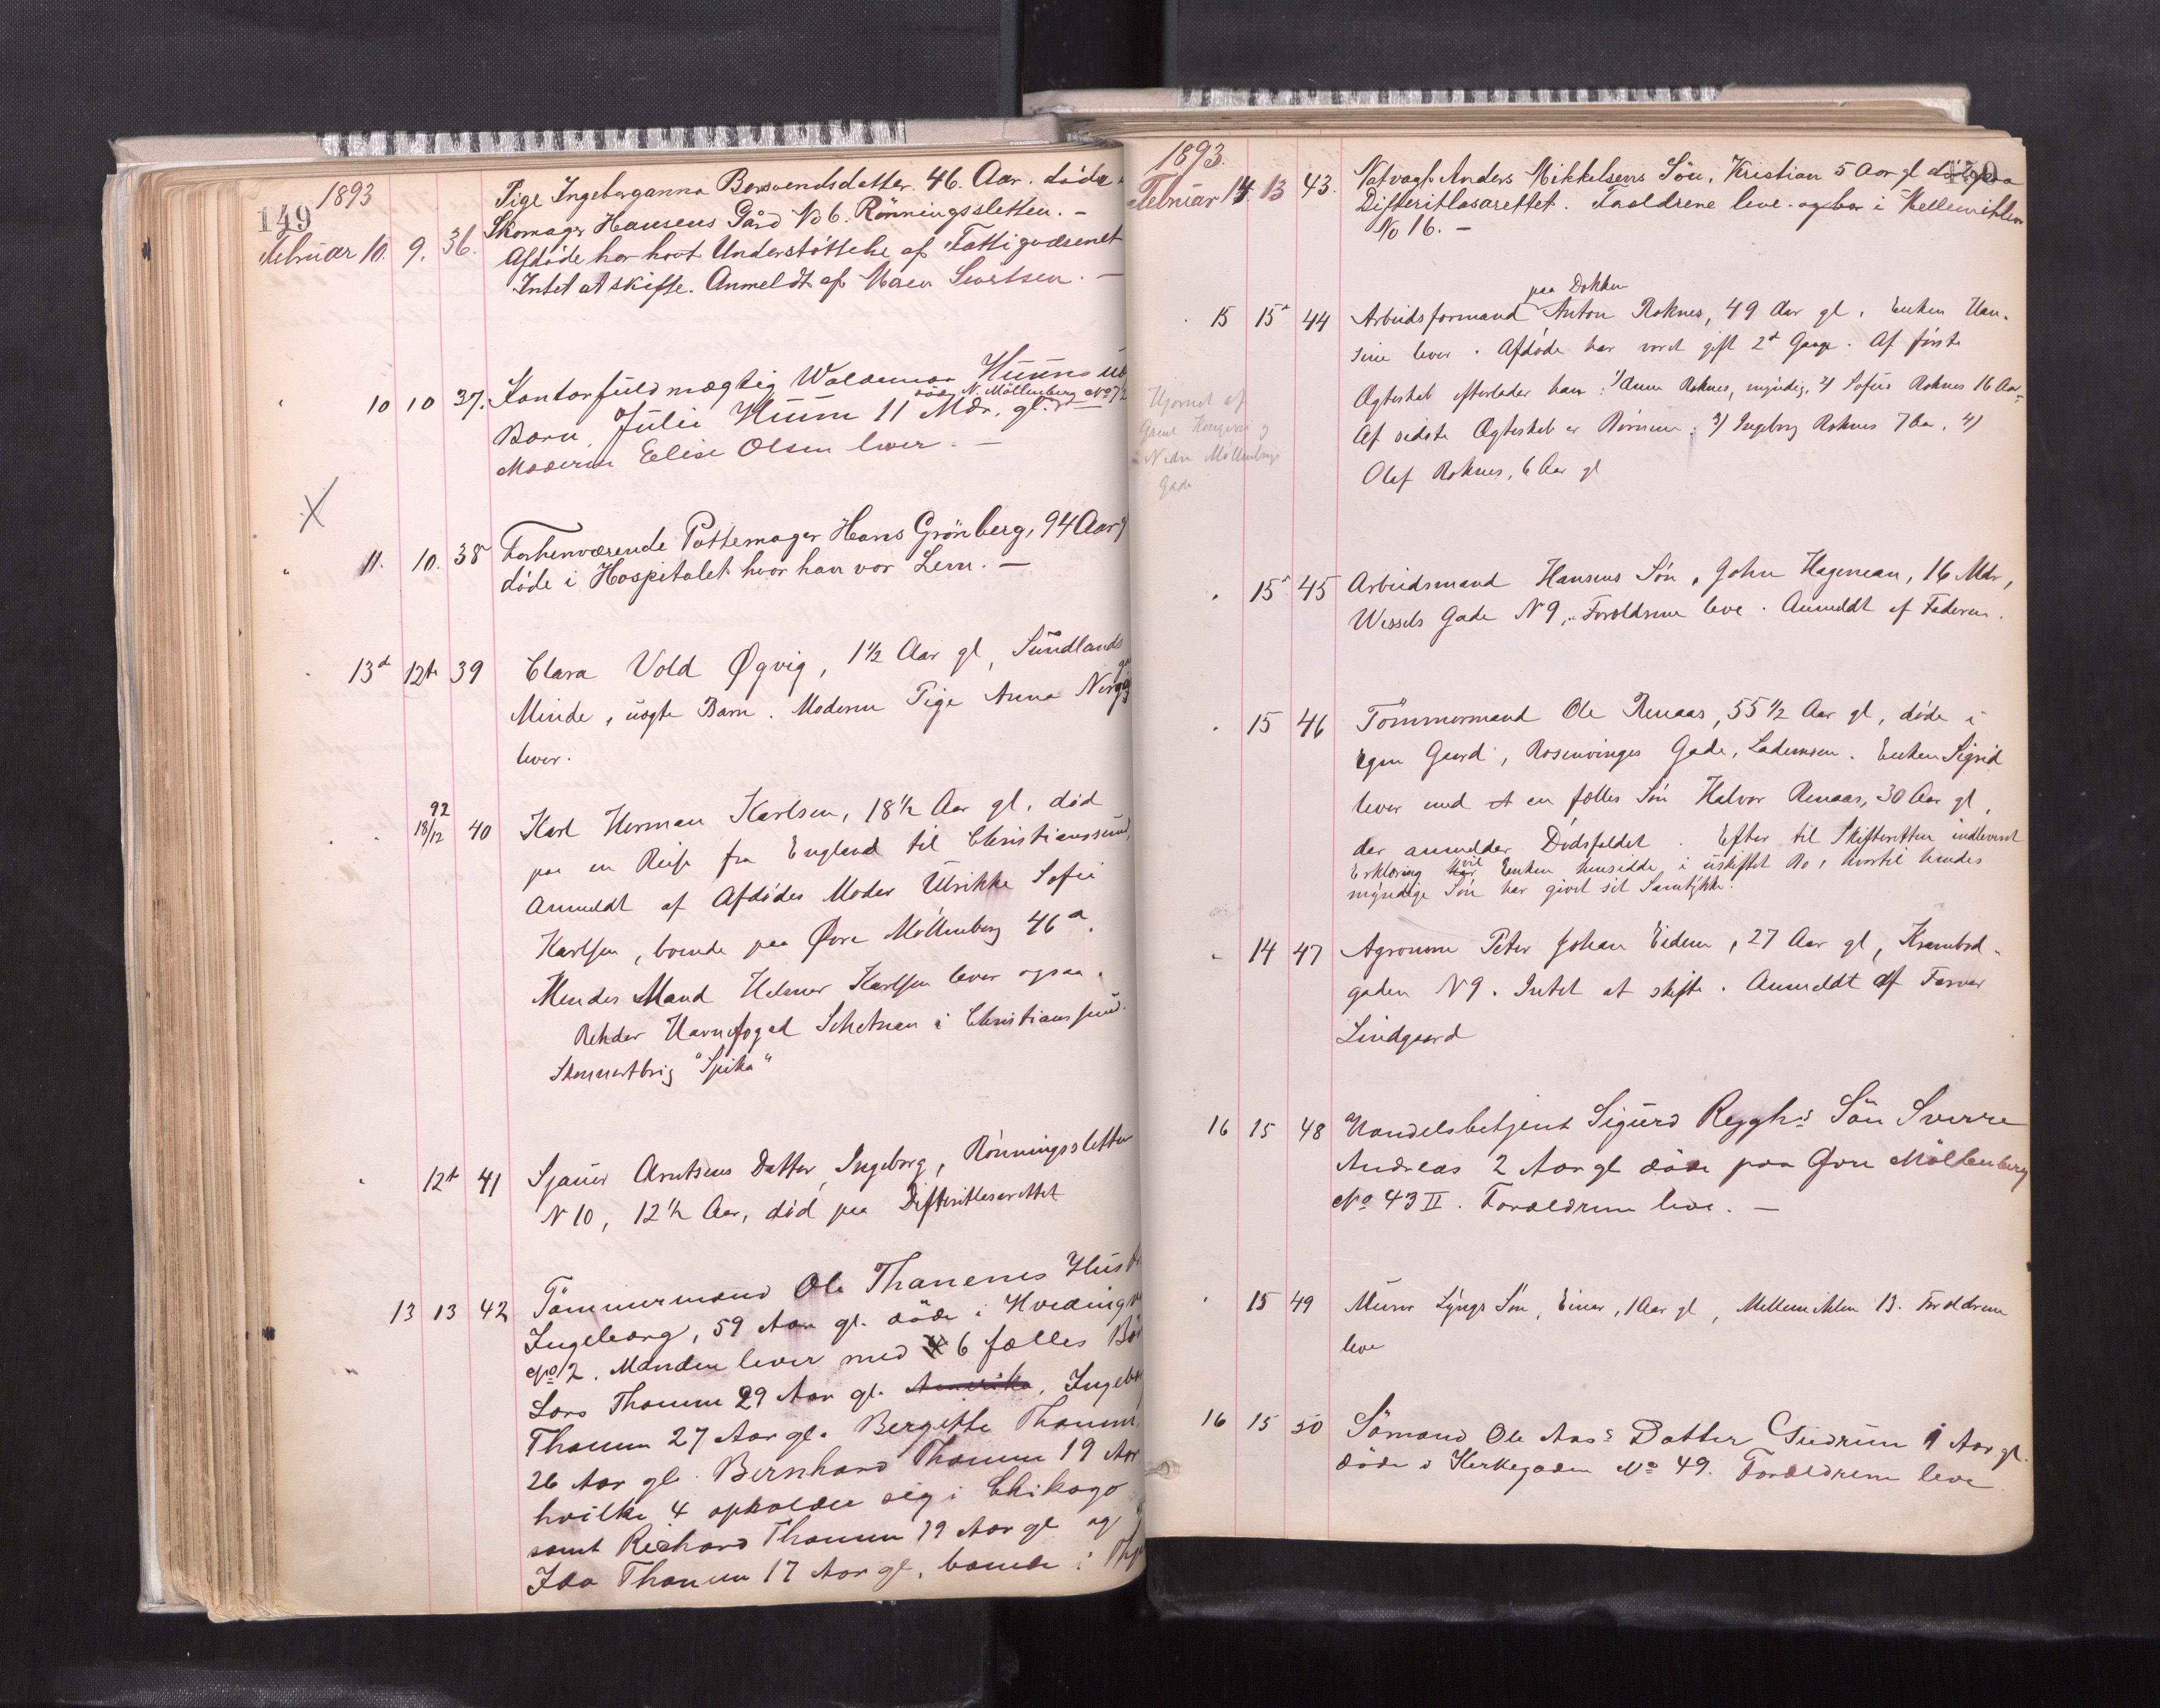 149
1893
Februar 10. 9. 36. Pige Ingeborganna Bersvendsdatter. 46. Aar. døde
Skomager Hansens Gård No 6. Rönningssletten. -
Afdøde har havt Understöttelse af Fattigvæsenet
Intet at skifte. Anmeldt af Maren Sivertsen. -
" 10 10 37. Kontorfuldmægtig Waldemar Huuns
död N. Möllenberg No 72
Barn, Julie Huun 11 Mdr. gl.
Moderen Elise Olsen lever. -
X
" 11. 10. 38 Forhenværende Pottemager Hans Grönberg, 94 Aar g
døde i Hospitalet hvor han var Lem. -
" 13d 12te 39 Clara Vold Øgvig, 1½ Aar gl, Sundlands
Minde, uægte Barn. Moderen Pige Anna
lever.
" 92
18/12 40 Karl Herman Karlsen, 18½ Aar gl, död
paa en Reise fra England til Christianssund,
Anmeldt af Afdödes Moder Ulrikke Sofie
Karlsen, boende paa Øvre Möllenberg 46a.
Hendes Mand Helmer Karlsen lever ogsaa.
Rehder Havnefoged Schetnan i Christianssund.
Skonnertbrig "Spika"
" 12te 41 Sjauer Arntsens Datter, Ingeborg, Rönningssletten
N 10, 12½ Aar, död paa Difteritlasarettet
13 13 42 Tömmermand Ole Thanems Hustr
Ingeborg, 59 Aar gl. döde i
No 2. Manden lever med 6 fælles Bör
Lars Thanem 29 Aar gl. Amerika, Ingebor
Thanem 27 Aar gl. Bergitte Thanem,
26 Aar gl. Bernhard Thanem 19 Aar
hvilke 4 opholder sig i Chikago
samt Richard Thanem 19 Aar gl og
Ida Thanem 17 Aar gl, boende i Thj
1893.
Februar 14. 13 43. Natvagt Anders Mikkelsens Sön, Kristian 5 Aar gl døde paa
Difteritlasarettet. Forældrene leve og bor i Mellemithlen
No 16. -
paa Dokken
" 15 15d 44 Arbeidsformand Anton Roknes, 49 Aar gl. Enken Han-
sine lever. Afdøde har været gift 2d Gange. Af første
Ægteskab efterlader han: 1) Anna Roknes, myndig, 2) Sofus Roknes 16 Aar,
Af sidste Ægteskab er Børnene: 3) Ingeborg Roknes 7 Aar, 4)
Olaf Roknes, 6 Aar gl
Hjørnet af
Gaml Kongevei og
Nedre Möllenbergs
Gade
" 15d 45 Arbeidsmand Hansens Sön, John Hageman, 16 Mdr,
Wessels Gade N 9, Forældrene leve. Anmeldt af Faderen.
" 15 46 Tömmermand Ole Renaas, 55½ Aar gl, døde i
egen Gaard, Rosenvinges Gade, Lademoen. Enken Sigrid
lever med en fælles Sön Halvor Renaas, 30 Aar gl,
der anmelder Dødsfaldet. Efter til Skifteretten indleveret
Erklæring vil Enken hensidde i uskiftet Bo, hvortil hendes
myndige Sön har givet sit Samtykke.
" 14 47 Agronom Peter Johan Eidem, 27 Aar gl, Krambod-
gaden N 9. Intet at skifte. Anmeldt af Farver
Lindgaard
16 15 48 Handelsbetjent Sigurd Ryghs Sön Sverre
Andreas 2 Aar gl döde paa Øvre Möllenberg
No 43 II. Forældrene leve. -
" 15 49 Murer Lyngs Sön, Einar, 1 Aar gl, Mellemithlen 13. Forældrene
leve
16 15 50 Sömand Ole Aas's Datter Gudrun 1 Aar gl.
döde i Kirkegaden No 49. Forældrene leve